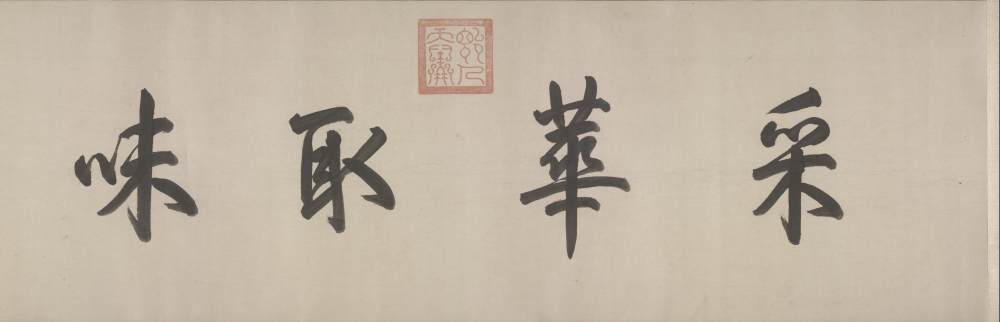 采華取味